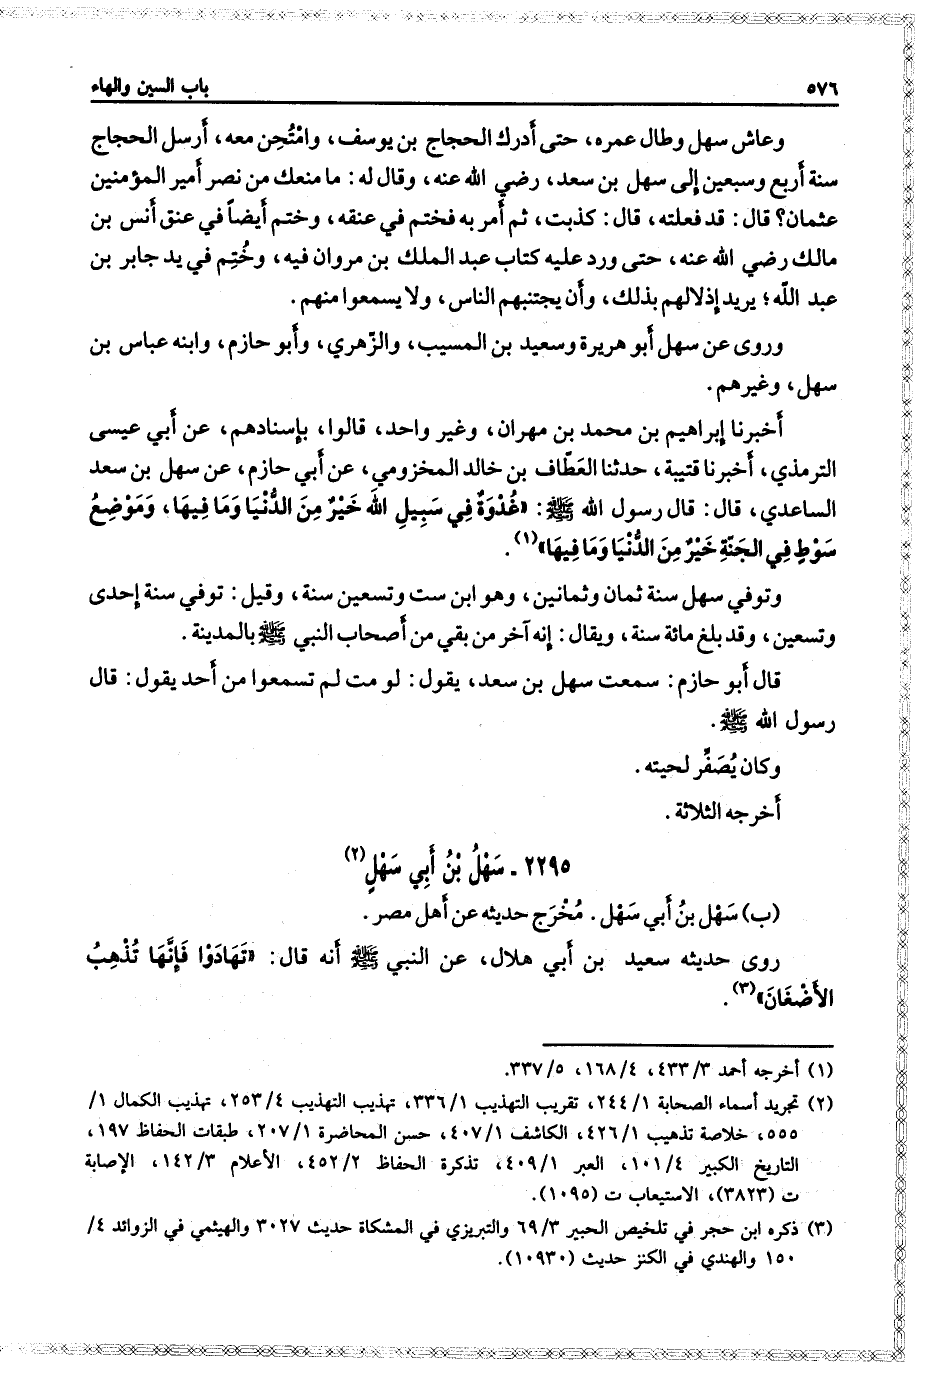 ٥٧٦ باب السين والهاء
وعاش سهل وطال عمره، حتى أدرك الحجاج بن يوسف، وامْتُحِن معه، أرسل الحجاج
سنة أربع وسبعين إلى سهل بن سعد، رضي الله عنه، وقال له: ما منعك من نصر أمير المؤمنين
عثمان؟ قال: قد فعلته، قال: كذبت، ثم أمر به فختم في عنقه، وختم أيضاً في عنق أنس بن
مالك رضي الله عنه، حتى ورد عليه كتاب عبد الملك بن مروان فيه، وخُتِم في يد جابر بن
عبد الله؛ يريد إذلالهم بذلك، وأن يجتنبهم الناس، ولا يسمعوا منهم.
وروى عن سهل أبو هريرة وسعيد بن المسيب، والزّهري، وأبو حازم، وابنه عباس بن
سهل، وغيرهم.
أخبرنا إبراهيم بن محمد بن مهران، وغير واحد، قالوا، بإسنادهم، عن أبي عيسى
الترمذي، أخبرنا قتيبة، حدثنا العَطّاف بن خالد المخزومي، عن أبي حازم، عن سهل بن سعد
الساعدي، قال: قال رسول الله ﷺ: «غُدْوَةٌ فِي سَبِيلِ الله خَيْرٌ مِنَ الدُّنْيَا وَمَا فِيهَا، وَمَوْضِعُ
سَوْطٍ فِي الجَنّةِ خَيْرٌ مِنَ الدُّنْيَا وَمَا فِيهَا»(١).
وتوفي سهل سنة ثمان وثمانين، وهو ابن ست وتسعين سنة، وقيل: توفي سنة إحدى
وتسعين، وقد بلغ مائة سنة، ويقال: إنه آخر من بقي من أصحاب النبي ﷺ بالمدينة.
قال أبو حازم: سمعت سهل بن سعد، يقول: لو مت لم تسمعوا من أحد يقول: قال
رسول الله ﷺ.
وكان يُصَفِّر لحيته.
أخرجه الثلاثة.
٢٢٩٥ ـ سَهْلُ بْنُ أَبِي سَهْلٍ(٢)
(ب) سَهْل بنُ أبي سَهْل. مُخْرَج حديثه عن أهل مصر.
روى حديثه سعيد بن أبي هلال، عن النبي ﷺ أنه قال: «تَهَادَوْا فَإنَّهَا تُذْهِبُ
الأَضْغَانَ»(٣).
(١) أخرجه أحمد ٤٣٣/٣، ١٦٨/٤، ٣٣٧/٥.
(٢) تجريد أسماء الصحابة ٢٤٤/١، تقريب التهذيب ٣٣٦/١، تهذيب التهذيب ٢٥٣/٤، تهذيب الكمال ١/
٥٥٥، خلاصة تذهيب ٤٢٦/١، الكاشف ٤٠٧/١، حسن المحاضرة ٢٠٧/١، طبقات الحفاظ ١٩٧،
التاريخ الكبير ١٠١/٤، العبر ٤٠٩/١، تذكرة الحفاظ ٤٥٢/٢، الأعلام ١٤٢/٣، الإصابة
ت (٣٨٢٣)، الاستيعاب ت (١٠٩٥).
(٣) ذكره ابن حجر في تلخيص الحبير ٦٩/٣ والتبريزي في المشكاة حديث ٣٠٢٧ والهيثمي في الزوائد ٤/
١٥٠ والهندي في الكنز حديث (١٠٩٣٠).